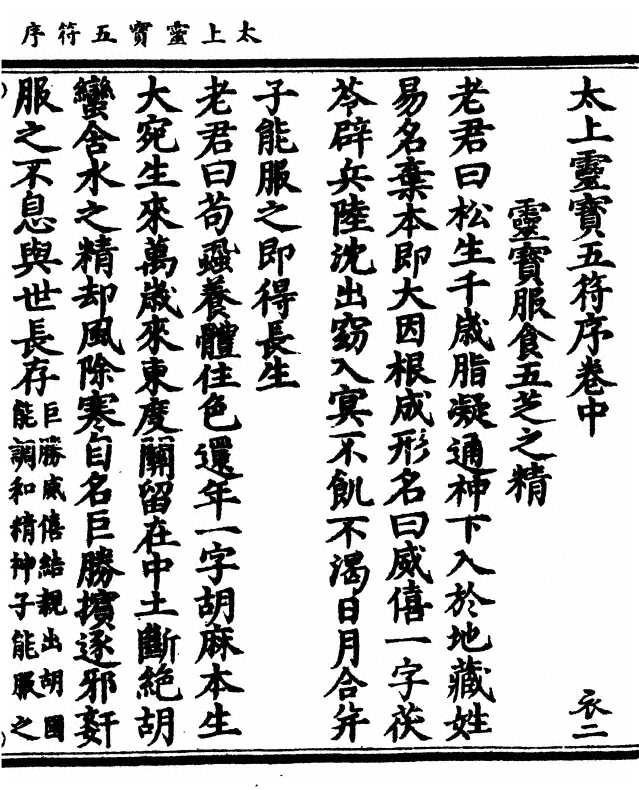 太上靈寶五符序
太上靈寶五符序卷中
衣二
靈寶服食五芝之精
老君曰松生千歲脂凝通神下入於地藏姓
易名棄本即大因根成形名曰威僖一字茯
苓辟兵陸沈出窈入冥不飢不渴日月合并
子能服之即得長生
老君曰苟蝨養體住色還年一字胡麻本生
大宛生來萬歲來東度關留在中土斷絕胡
蠻含水之精却風除寒自名巨勝擯逐邪姧
服之不息與世長存
巨勝威僖結親出胡國
能調和精神子能服之